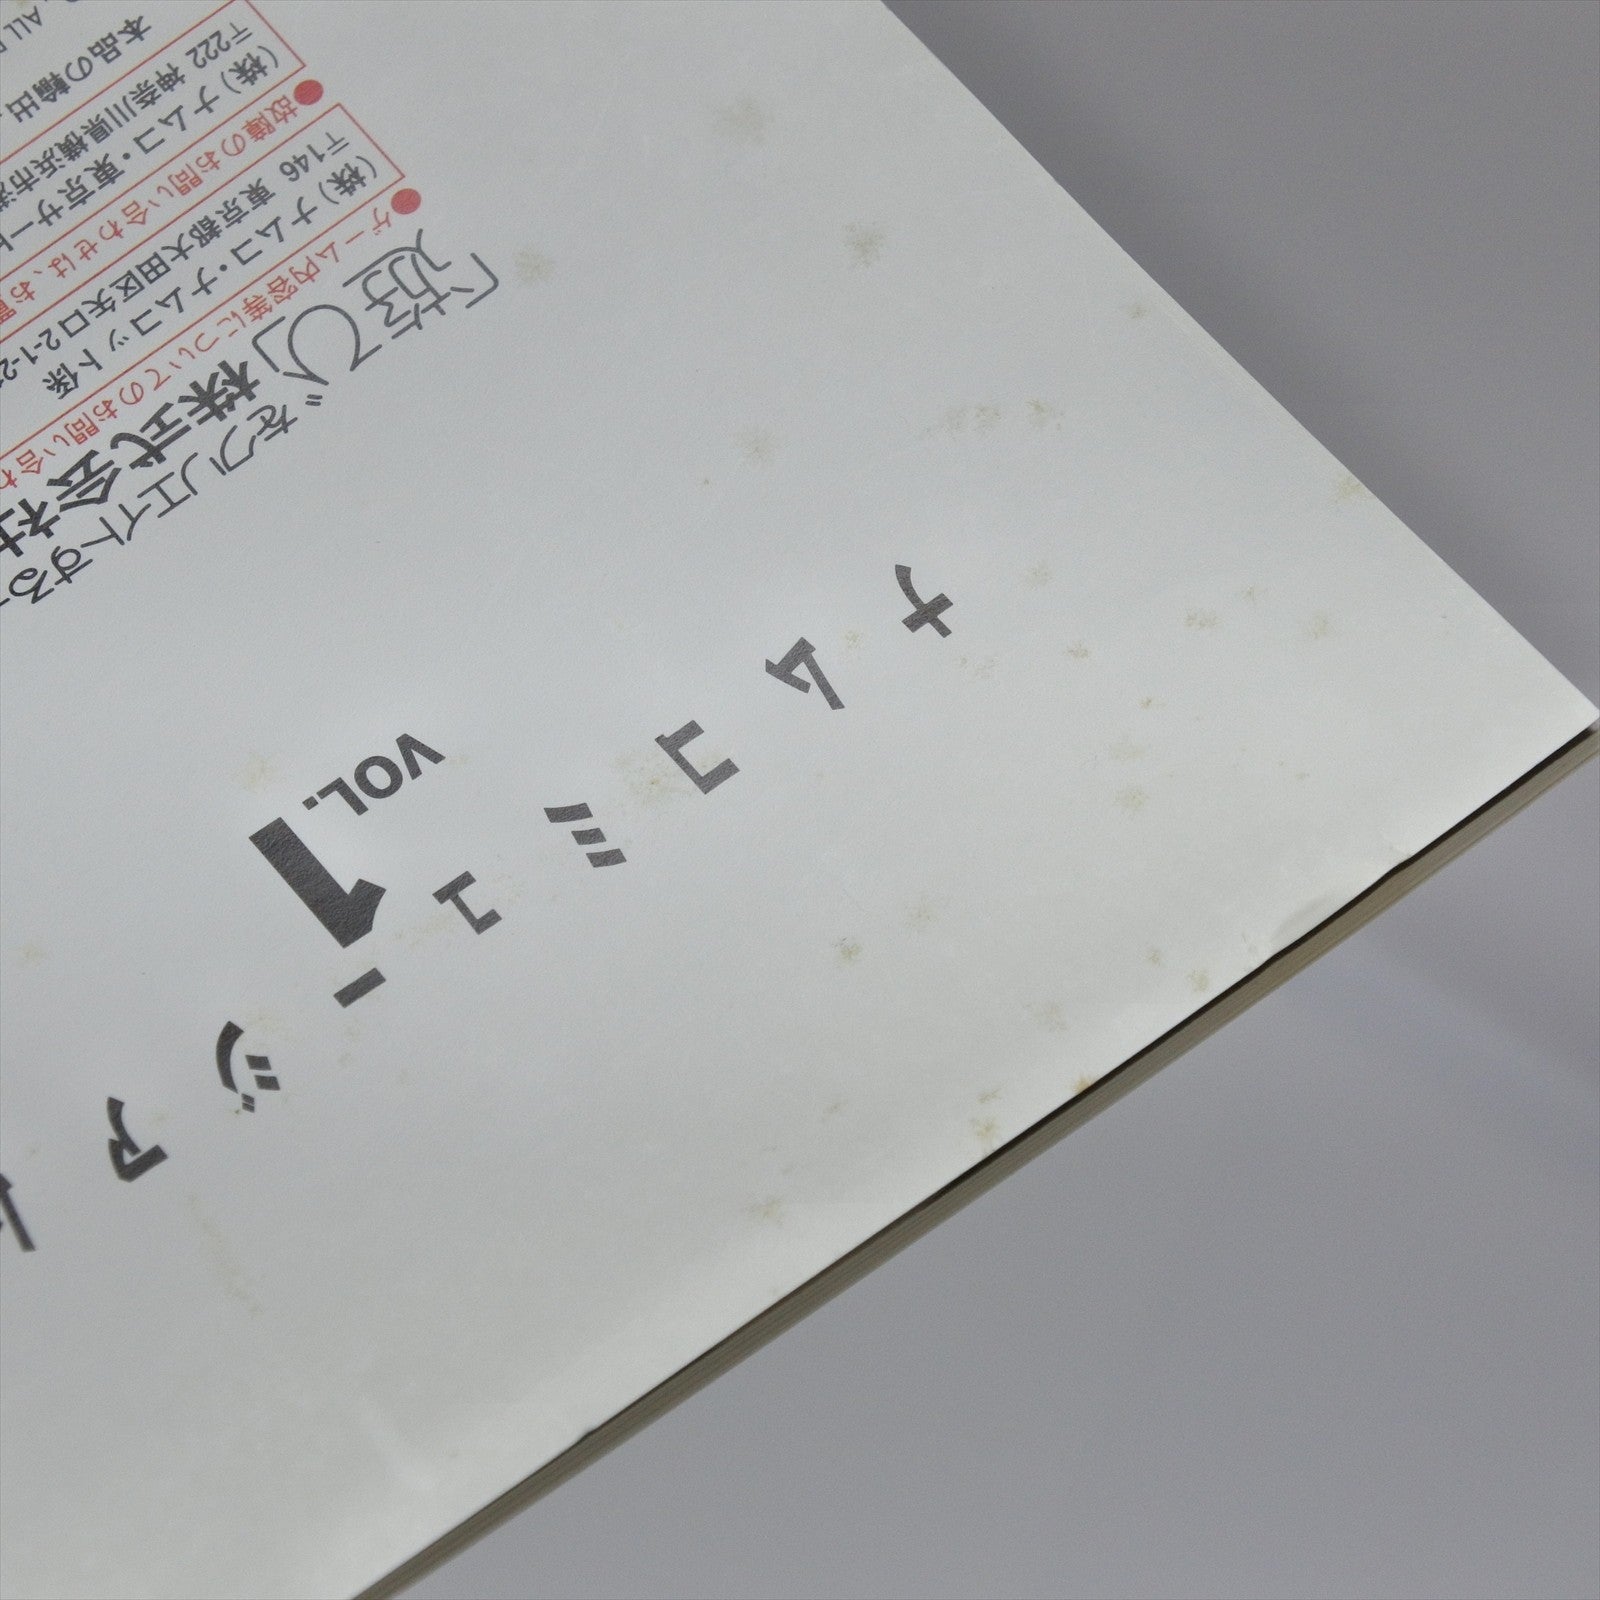 ナムコミュージアム
VOL.
1
「遊び」をクリエイトする
株式会社
●ゲーム内容等についてのお問い合わ
(株)ナムコ・ナムコット係
〒146 東京都大田区矢口2-1-2
●故障のお問い合わせは、お買
(株)ナムコ・東京サー
〒222 神奈川県横浜市港
本品の輸出、
ALL